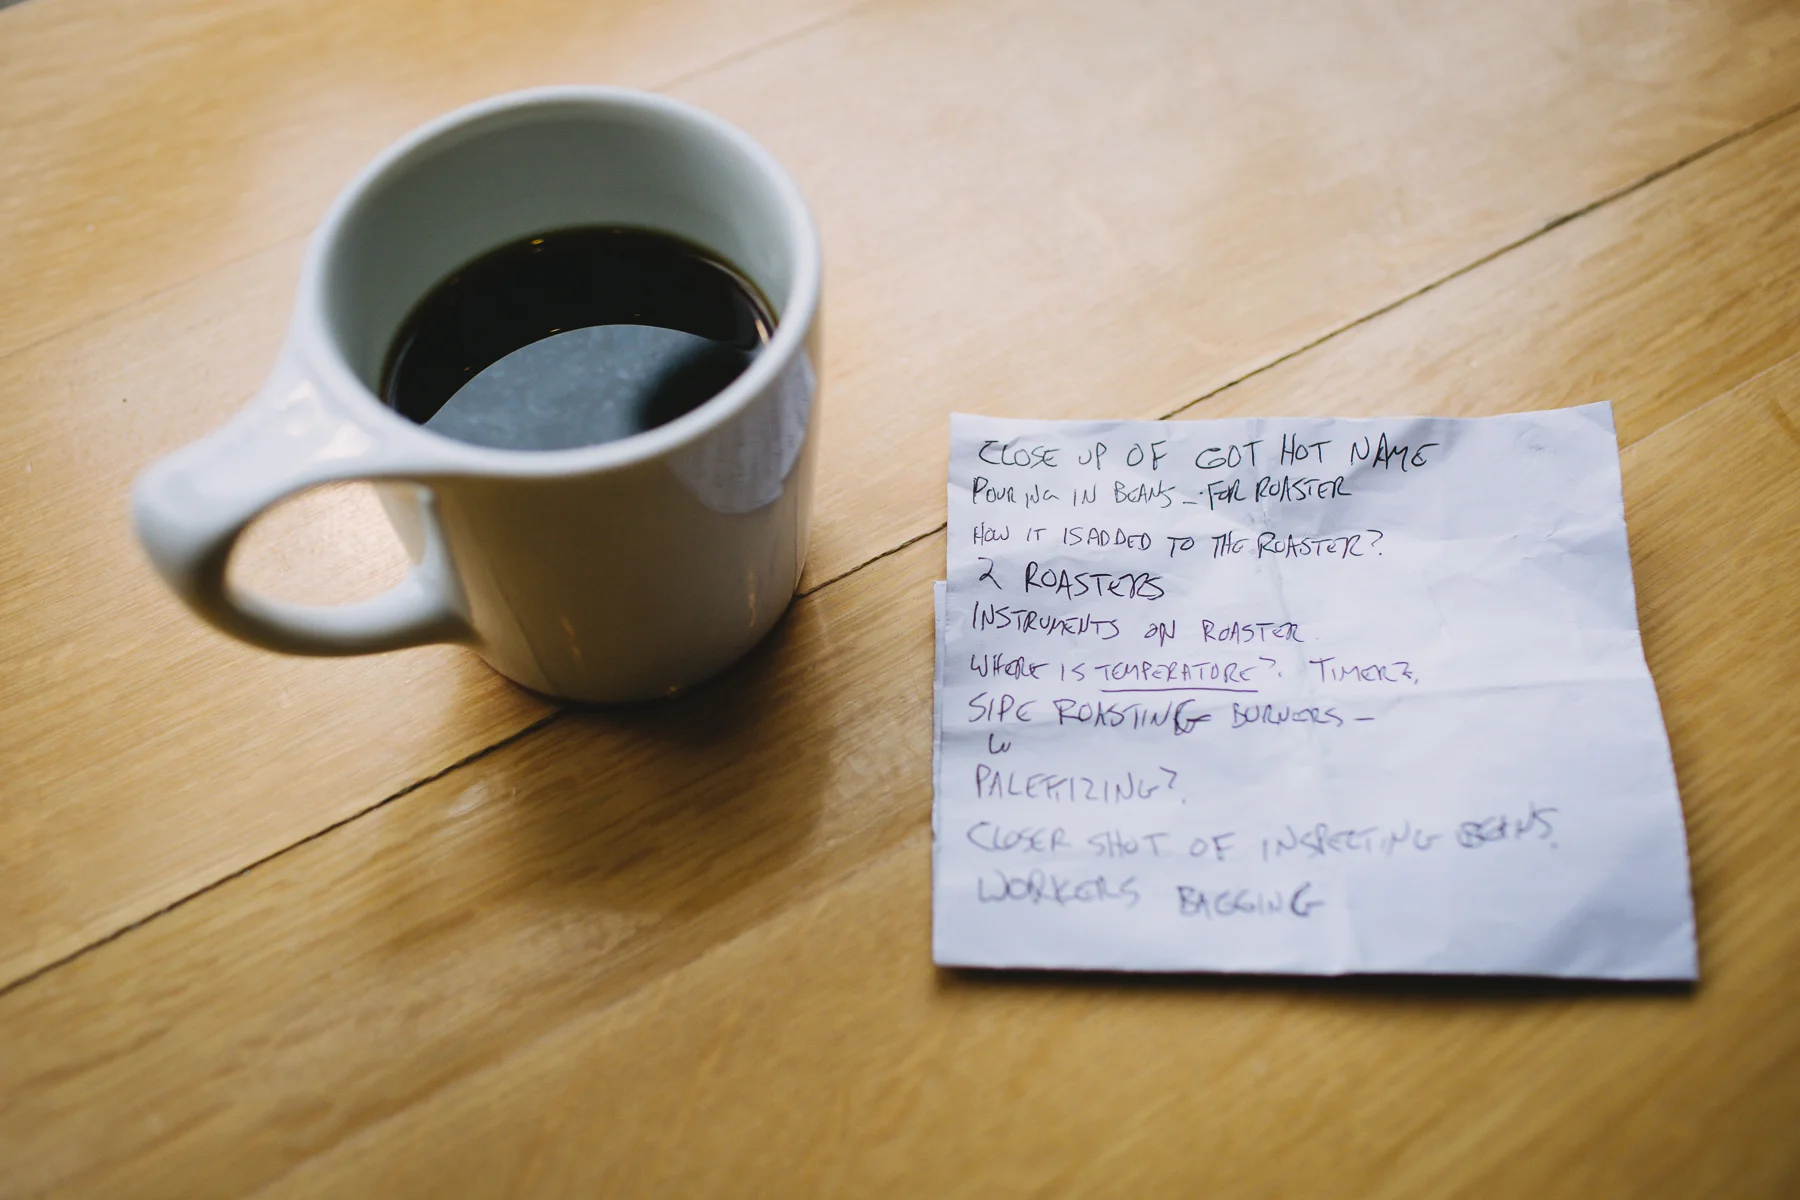 CLOSE UP OF GOT HOT NAME
POURING IN BEANS - FOR ROASTER
HOW IT IS ADDED TO THE ROASTER?
2 ROASTERS
INSTRUMENTS ON ROASTER
WHERE IS TEMPERATORE? TIMER?
SIDE ROASTING BURNERS -
PALETTIZING?
CLOSER SHOT OF INSPECTING BEANS.
WORKERS BAGGING